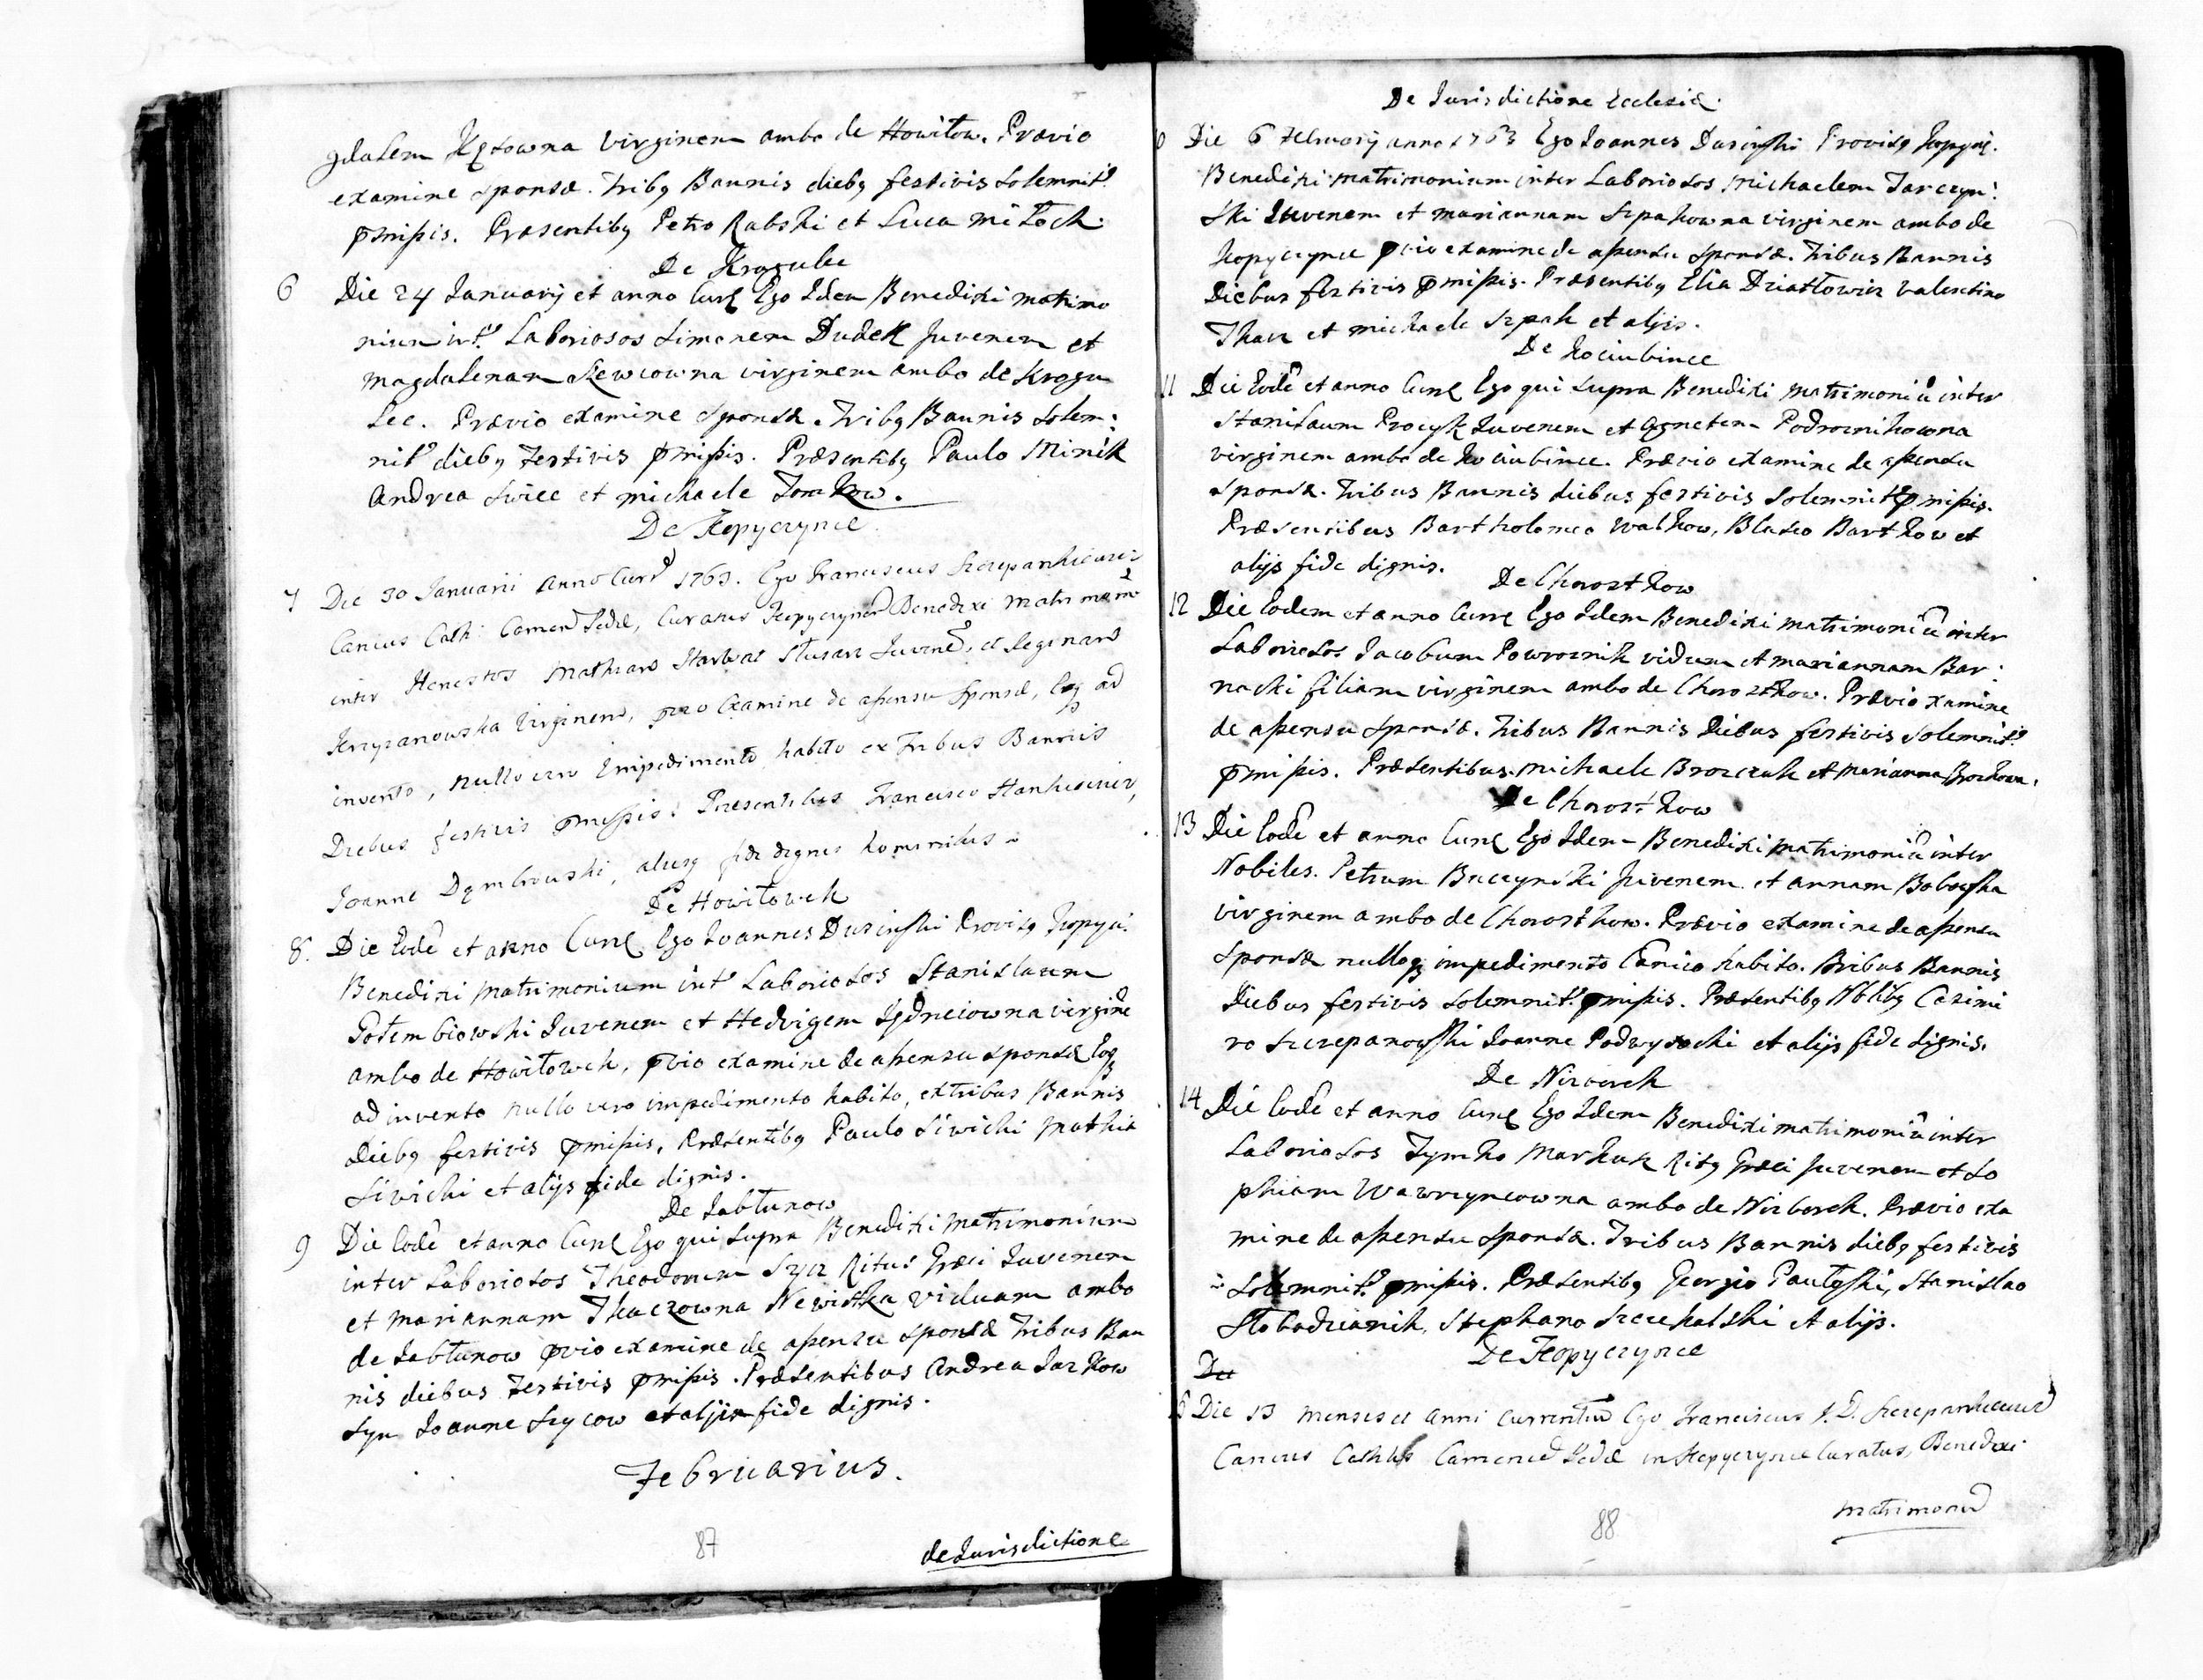 gdalem Kętowna virginem ambo de Howiłow. Prævio
examine sponsæ. Tribq Bannis diebq festivis Solemnit?
pmissis. Præsentibq Petro Rabski et Luca Miłoch.
De Krogulec
6 Die 24 January et anno Curr Ego Idem Benedixi matrimo
nium int? Laboriosos Simonem Dudek Juvenem et
Magdalenam Szewcowna virginem ambo de Krogu
lec. Prævio examine Sponsæ. Tribq Bannis Solem:
nit? diebq Festivis pmissis. Præsentibq Paulo Minik
Andrea Swiec et michaele Tomkow.
De Kopyczynce
7 Die 30 Januarii Anno Curr 1763. Ego Franciscus Szczepankiewicz
Canicus Cath: Camen Podol, Curatus Kopyczyncen Benedixi Matrimom
inter Honestos Mathiam Starbał Slusarz Juvene, et Reginam
Krzyzanowska Virginem, pvio Examine de assensu Sponsæ, eoq ad
invento, nullo vero Impedimento habito ex Tribus Bannis
Diebus festivis pmissis. Præsentibus Francisco Stankiewicz,
Joanne Dąmbrowski, alysq fide dignis hominibus
De Howiłowch
8. Die Eode et anno Curr Ego Joannes Dusinski Provisq Kopyci:
Benedixi Matrimonium int? Laboriosos Stanislaum
Gołembiowski Juvenem et Hedvigem Iędrzeiowna virgine
ambo de Howiłowch, pvio examine de assensu sponsæ Eoq
ad invento nullo vero impedimento habito, ex tribus Bannis
Diebq festivis pmissis, Præsentibq Paulo Siwicki Mathia
Siwicki et alijs fide dignis.
De Iabłunow
9 Die Eode et anno Curr Ego qui Supra Benedixi Matrimonium
inter Laboriosos Theodorum Szyc Ritus Græci Juvenem
et Mariannam Tkaczowna Newistka viduam ambo
de Iabłunow pvio examine de assensu sponsæ Tribus Ban
nis diebus Festivis pmissis. Præsentibus Andrea Iazkow
Syn Joanne Szycow et alijs fide dignis.
Februarius.
87
de Jurisdictione
De Jurisdictione Ecclesiæ.
Die 6 February anno 1763 Ego Joannes Dusinski Provisq Kopyci.
Benedixi matrimonium inter Laboriosos Michaelem Jarczyn:
ski Iuvenem et mariannam Szpakowna virginem ambo de
Kopyczynce pvio examine de assensu sponsæ. Tribus Bannis
Diebus festivis pmissis. Præsentibq Elia Dziatłowicz Valentino
Tkacz et michaele Szpak et alijs.
De Kociubince
11 Die Eode et anno Curr Ego qui Supra Benedixi matrimoniu inter
Stanisłaum Procyk Iuvenem et Agnetem Podroznikowna
virginem ambo de Kociubince. Prævio examine de assensu
sponsæ. Tribus Bannis diebus festivis Solemnit? pmissis.
Præsentibus Bartholomeo Walkow, Blaseo Bartkow et
alijs fide dignis.
De Chorostkow
12 Die Eodem et anno Curr Ego Idem Benedixi matrimoniu inter
Laboriosos Jacobum Powroznik viduum et mariannam Bar:
nacki filiam virginem ambo de Chorostkow. Prævio Xamine
de assensu sponsæ. Tribus Bannis Diebus festivis Solemnit?
pmissis. Præsentibus Michaele Brozczuk et Marianna Broczkowa.
De Chorostkow
13 Die Eode et anno Curr Ego Idem Benedixi matrimoniu inter
Nobiles. Petrum Buczynski Juvenem et annam Boborska
virginem ambo de Chorostkow. Prævio examine de assensu
Sponsæ nulloq impedimento Canico habito. Tribus Bannis
Diebus festivis solemnit? pmissis. Præsentibq Nblibq Casimi
ro Szczepanowski Joanne Podwysocki et alijs fide dignis.
De Nizborch
14 Die Eode et anno Curr Ego Idem Benedixi matrimoniu inter
Laboriosos Tymko Markuk Ritq Græci Juvenem et So
phiam Wawrzyncowna ambo de Nizborch. Prævio exa
mine de assensu Sponsæ. Tribus Bannis diebq festivis
Solemnit? pmissis. Præsentibq Georgio Paulski, Stanislao
Słobodzianik, Stephano Szczekalski et alijs.
De Kopyczynce
De
Die 13 mensis et anni currentis Ego Franciscus S. D. Szczepankiewicz
Canicus Cathlis Camened Podol in Kopyczynce Curatus, Benedixi
88
Matrimonu